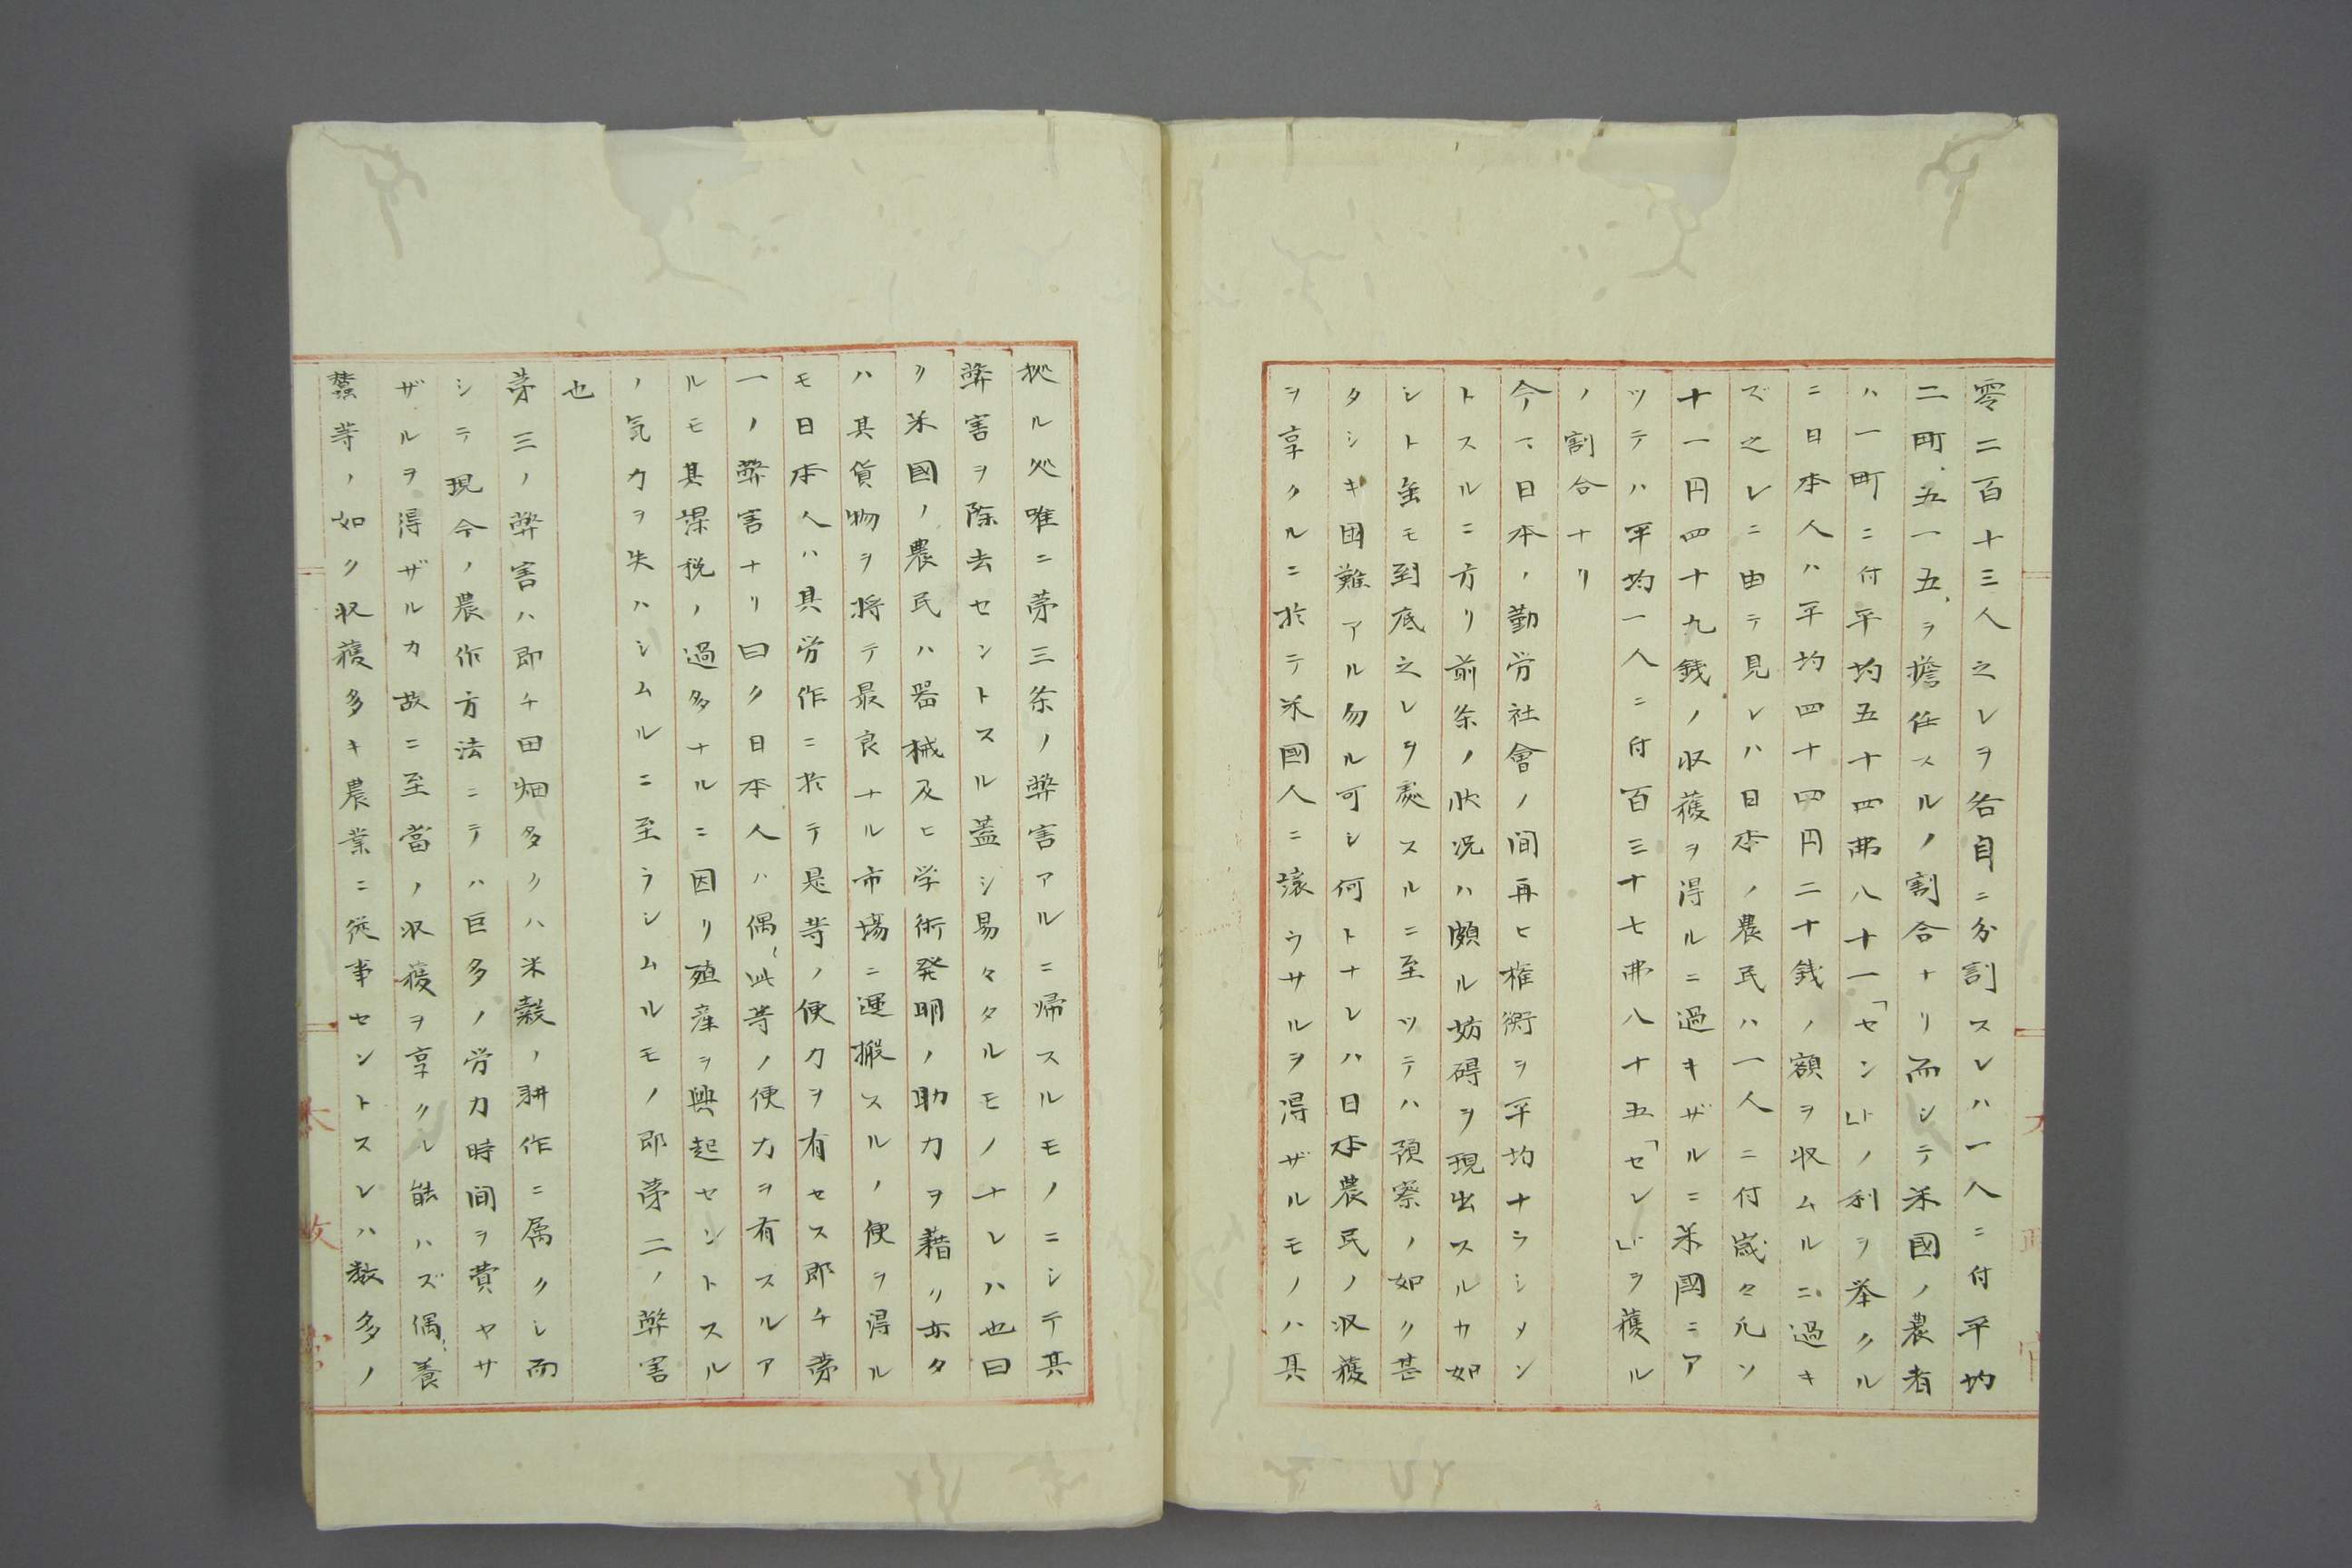 零二百十三人之レヲ各自ニ分割スレハ一人ニ付平均
二町、五一五、ヲ擔任スルノ割合ナリ而シテ米國ノ農者
ハ一町ニ付平均五十四弗八十一「セント」ノ利ヲ挙クル
ニ日本人ハ平均四十四円二十銭ノ額ヲ収ムルニ過キ
ズ之レニ由テ見レハ日本ノ農民ハ一人ニ付歳々凡ソ
十一円四十九銭ノ収獲ヲ得ルニ過キザルニ米國ニア
ツテハ平均一人ニ付百三十七弗八十五「セント」ヲ獲ル
ノ割合ナリ
今マ日本ノ勤労社會ノ間再ヒ権衡ヲ平均ナラシメン
トスルニ方リ前条ノ状况ハ頗ル妨碍ヲ現出スルカ如
シト虽モ到底之レヲ処スルニ至ツテハ預察ノ如ク甚
タシキ困難アル勿ル可シ何トナレハ日本農民ノ収獲
ヲ享クルニ於テ米國人ニ讓ラサルヲ得ザルモノハ其
拠ル処唯ニ第三条ノ弊害アルニ帰スルモノニシテ其
弊害ヲ除去セントスル蓋シ易々タルモノナレハ也曰
ク米國ノ農民ハ器械及ヒ学術発明ノ助力ヲ藉リ亦タ
ハ其貨物ヲ将テ最良ナル市場ニ運搬スルノ便ヲ得ル
モ日本人ハ其労作ニ於テ是等ノ便力ヲ有セス即チ第
一ノ弊害ナリ曰ク日本人ハ偶〻此等ノ便力ヲ有スルア
ルモ其課税ノ過多ナルニ因リ殖産ヲ興起セントスル
ノ気力ヲ失ハシムルニ至ラシムルモノ即第二ノ弊害
也
第三ノ弊害ハ即チ田畑多クハ米穀ノ耕作ニ属クシ而
シテ現今ノ農作方法ニテハ巨多ノ労力時間ヲ費ヤサ
ザルヲ得ザルカ故ニ至當ノ収獲ヲ享クル能ハズ偶〻養
蠶等ノ如ク収獲多キ農業ニ従事セントスレハ数多ノ